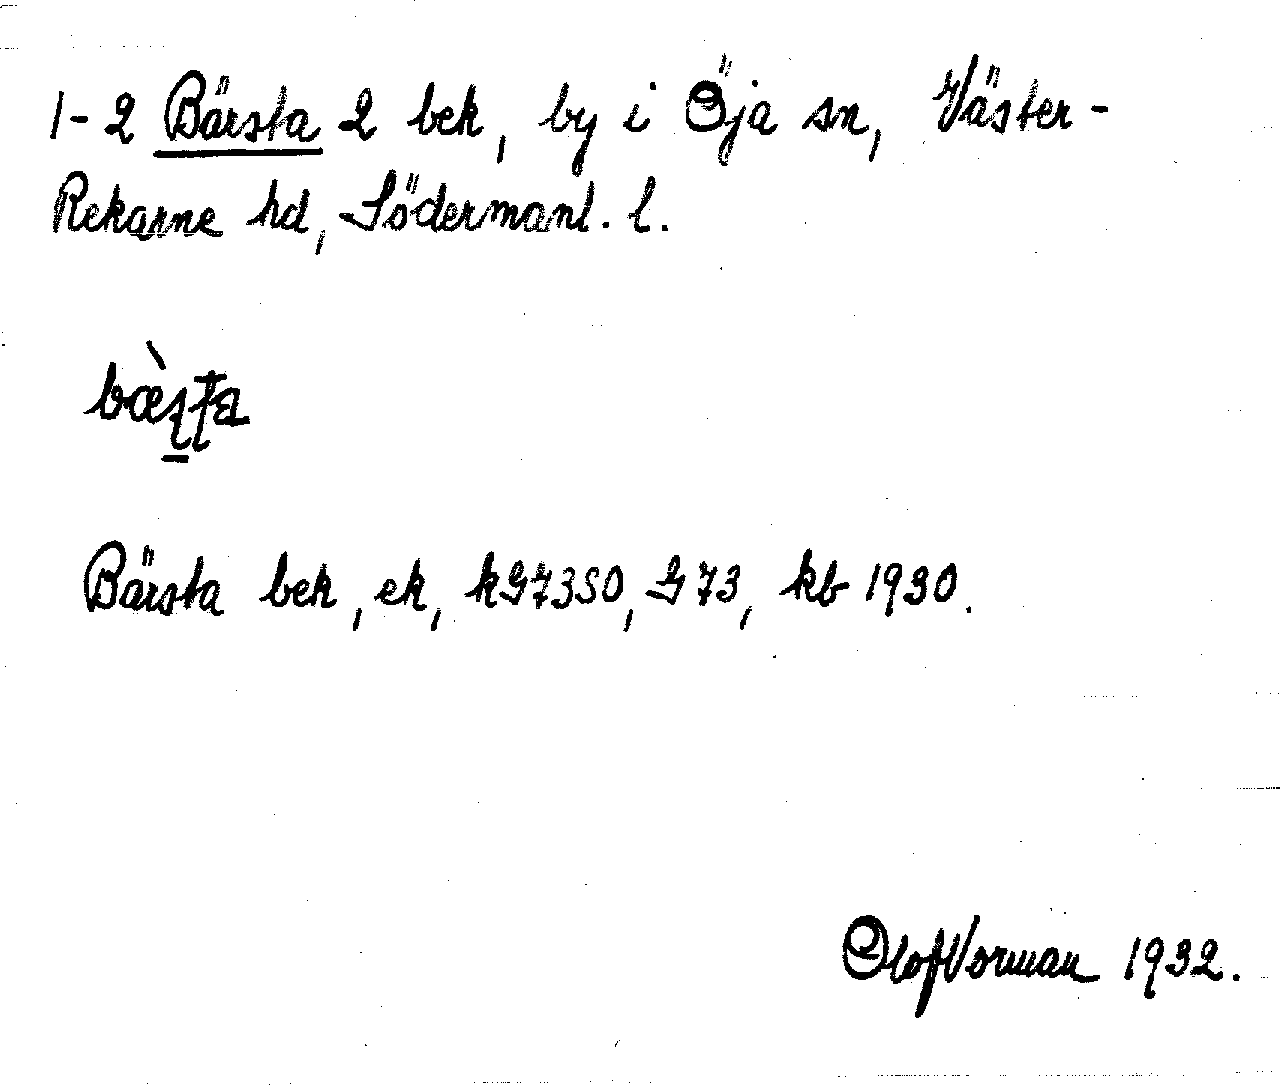 1-2 Bärsta 2 bek, by i Öja sn, Väster-
Rekarne hd, Södermanl. l.
Bärsta bek, ek, kG73SO, G73, kb 1930.
Olof Vorman 1932.